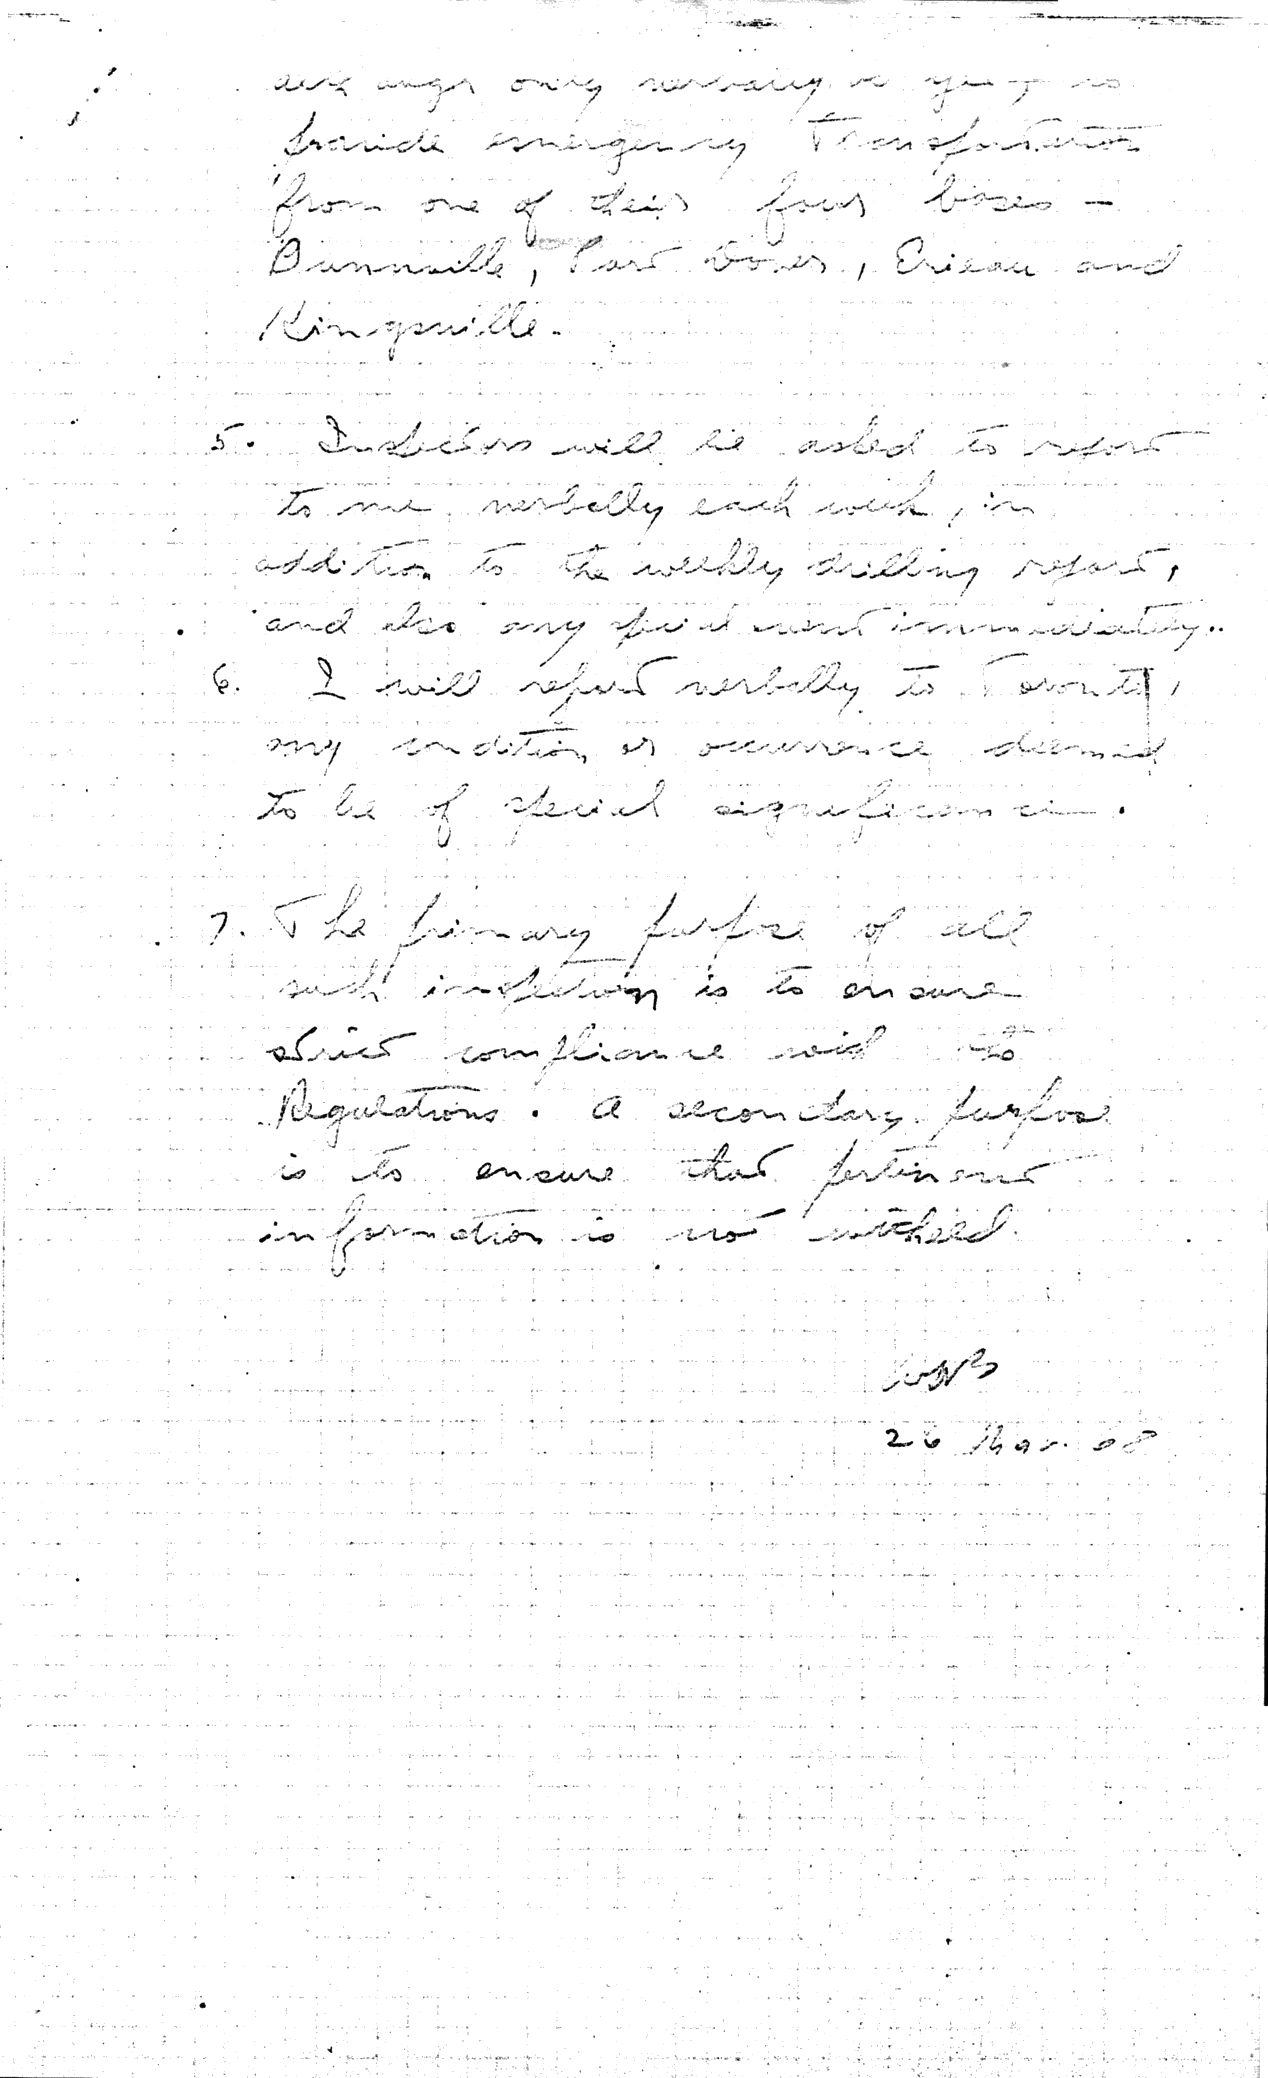 only verbally
provide emergency Transportation
from one of their four bases -
Dunnville, Port Dover, Erieau and
Kingsville.
5. Inspectors will be asked to report
to me verbally each week, in
addition to the weekly drilling report,
and also any special event immediately.
6. I will report verbally to Toronto,
any condition or occurrence deemed
to be of special significance.
7. The primary purpose of all
such inspection is to ensure
strict compliance with the
Regulations. A secondary purpose
is to ensure that pertinent
information is not witheld.
26 Mar. 68